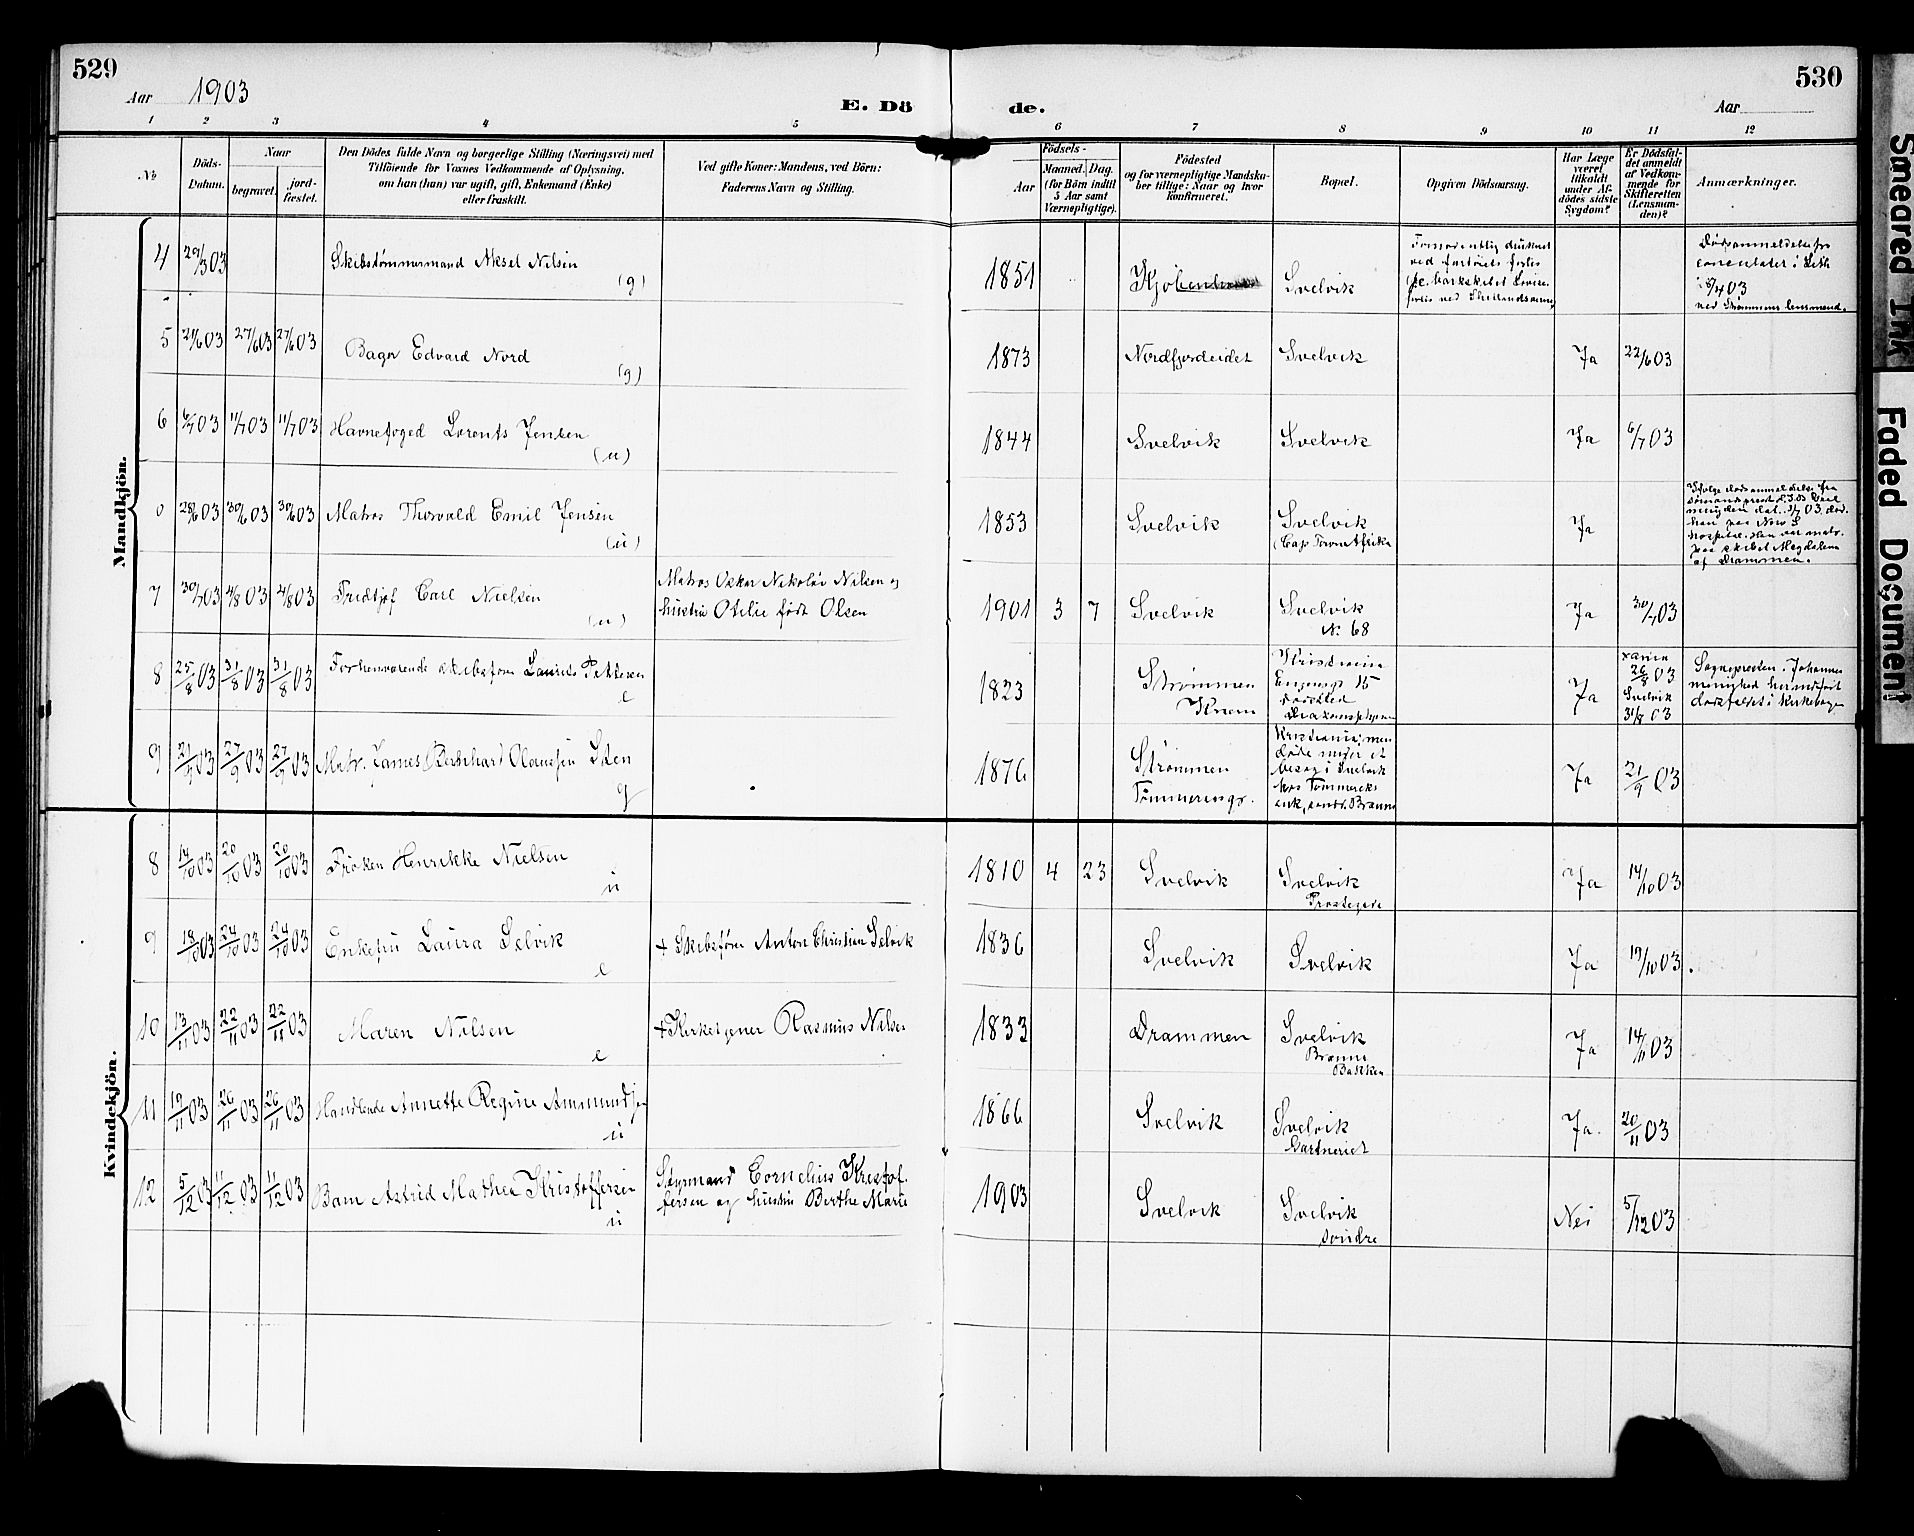 529
Aar 1903
E. Dö
de.
Aar
530
1 2 3 4 5 6 7 8 9 10 11 12
No
Döds-
Datum.
Naar
begravet.
jord-
fæstet.
Den Dödes fulde Navn og borgerlige Stilling (Næringsvei) med
Tilföiende for Voxnes Vedkommende af Oplysning,
om han (hun) var ugift, gift, Enkemand (Enke)
eller fraskilt.
Ved gifte Koner: Mandens, ved Börn:
Faderens Navn og Stilling.
Födsels-
Aar
Maaned. Dag.
(for Börn indtil
5 Aar samt
Værnepligtige).
Födested
og for værnepligtige Mandska-
ber tillige: Naar og hvor
konfirmeret.
Bopæl.
Opgiven Dödsaarsag.
Har Læge
været
tilkaldt
under Af-
dödes sidste
Sygdom?
Er Dödsfal-
det anmeldt
af Vedkom-
mende for
Skifteretten
(Lensman-
den)?
Anmærkninger.
Mandkjön.
4 29/3 03 Skibstømmermand Aksel Nilsen
(g)
1851 Svelvik
ved
5 03 27/6 03 27/6 03 Bager Edvard Nord
(g)
1873 Nordfjordeidet Svelvik Ja 22/6 03
6 6/7 03 11/7 03 11/7 03 Havnefoged Lorents Jensen
(u)
1844 Svelvik Svelvik Ja 6/7 03
0 28/6 03 30/6 03 30/6 03 Matros Thorvald Emil Jensen
(u)
1853 Svelvik Svelvik
(Cap Town Afrika
Ja
paa skibet Magdalena
af Drammen.
7 30/7 03 4/8 03 4/8 03 Fridtjof Carl Nielsen
(u)
Matros Oskar Nikolai Nilsen og
hustru Otilie født Olsen
1901 3 7 Svelvik Svelvik
No 68
Ja 30/7 03
8 25/8 03 31/8 03 31/8 03 Forhenværende skibsfører Laurits Pettersen
e
1823 Strømmen
Ja
26/8 03
Svelvik
31/8 03
Sognepresten i Johannes
menighed
9 21/9 03 27/9 03 27/9 03 Matr. James Bernhard Olaussen Sten
g
1876 Strømmen
Kristiania; men
døde under et
besøg i Svelvik
hos
Ja 21/9 03
Kvindekjön.
8 14/10 03 20/10 03 20/10 03 Frøken Henrikke Nielsen
u
1810 4 23 Svelvik Svelvik
Ja 14/10 03
9 18/10 03 24/10 03 24/10 03 Enkefru Laura Selvik
e
+ Skibsfører Anton Christian Selvik
1836 Svelvik Svelvik Ja 19/10 03
10 13/11 03 22/11 03 22/11 03 Maren Nilsen
e
+ Kirketjener Rasmus Nilsen
1833 Drammen Svelvik
Bakken
Ja 14/11 03
11 19/11 03 26/11 03 26/11 03 Handlende Annette Regine Ammundsen
u
1866 Svelvik Svelvik
Gartneriet
Ja. 20/11 03
12 5/12 03 11/12 03 11/12 03 Barn Astrid Mathea Kristoffersen
u
Styrmand Cornelius Kristof-
fersen og hustru Berthe Marie
1903 Svelvik Svelvik
søndre
Nei 5/12 03
Smeared Ink
Faded Document